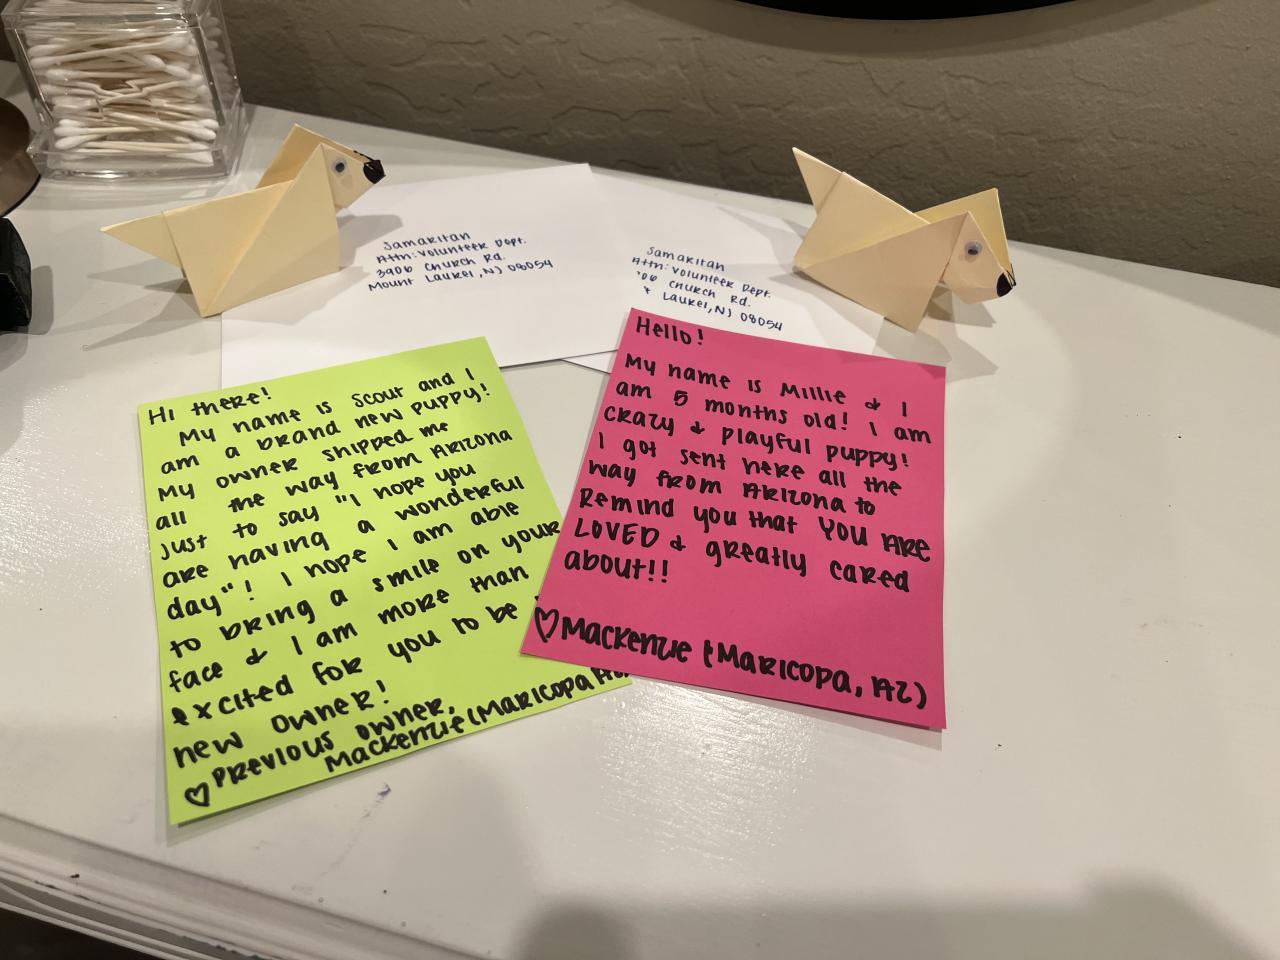 Samaritan
Attn: Volunteer Dept.
3906 Church Rd.
Mount Laurel, NJ 08054
Samaritan
Attn: Volunteer Dept.
06 Church Rd.
Laurel, NJ 08054
Hi there!
My name is Scout and I
am a brand new puppy!
My owner shipped me
all the way from Arizona
just to say "I hope you
are having a wonderful
day"! I hope I am able
to bring a smile on your
face & I am more than
excited for you to be
new owner!
♡ Previous owner,
Mackenzie (Maricopa
Hello!
My name is Millie & I
am 5 months old! I am
crazy & playful puppy!
I got sent here all the
way from Arizona to
Remind you that YOU ARE
LOVED & greatly cared
about!!
♡ Mackenzie (Maricopa, AZ)